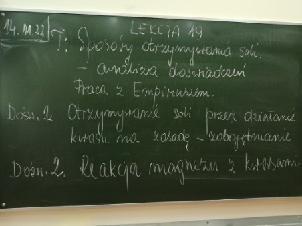 14.11.22
LEKCJA 19
T: Sposoby otrzymywania soli.
– analiza doświadczeń
Praca z Empiriuszem.
Dośw. 1 Otrzymywanie soli przez działanie
kwasu na zasadę – zobojętnianie
Dośw. 2. Reakcja magnezu z kwasami